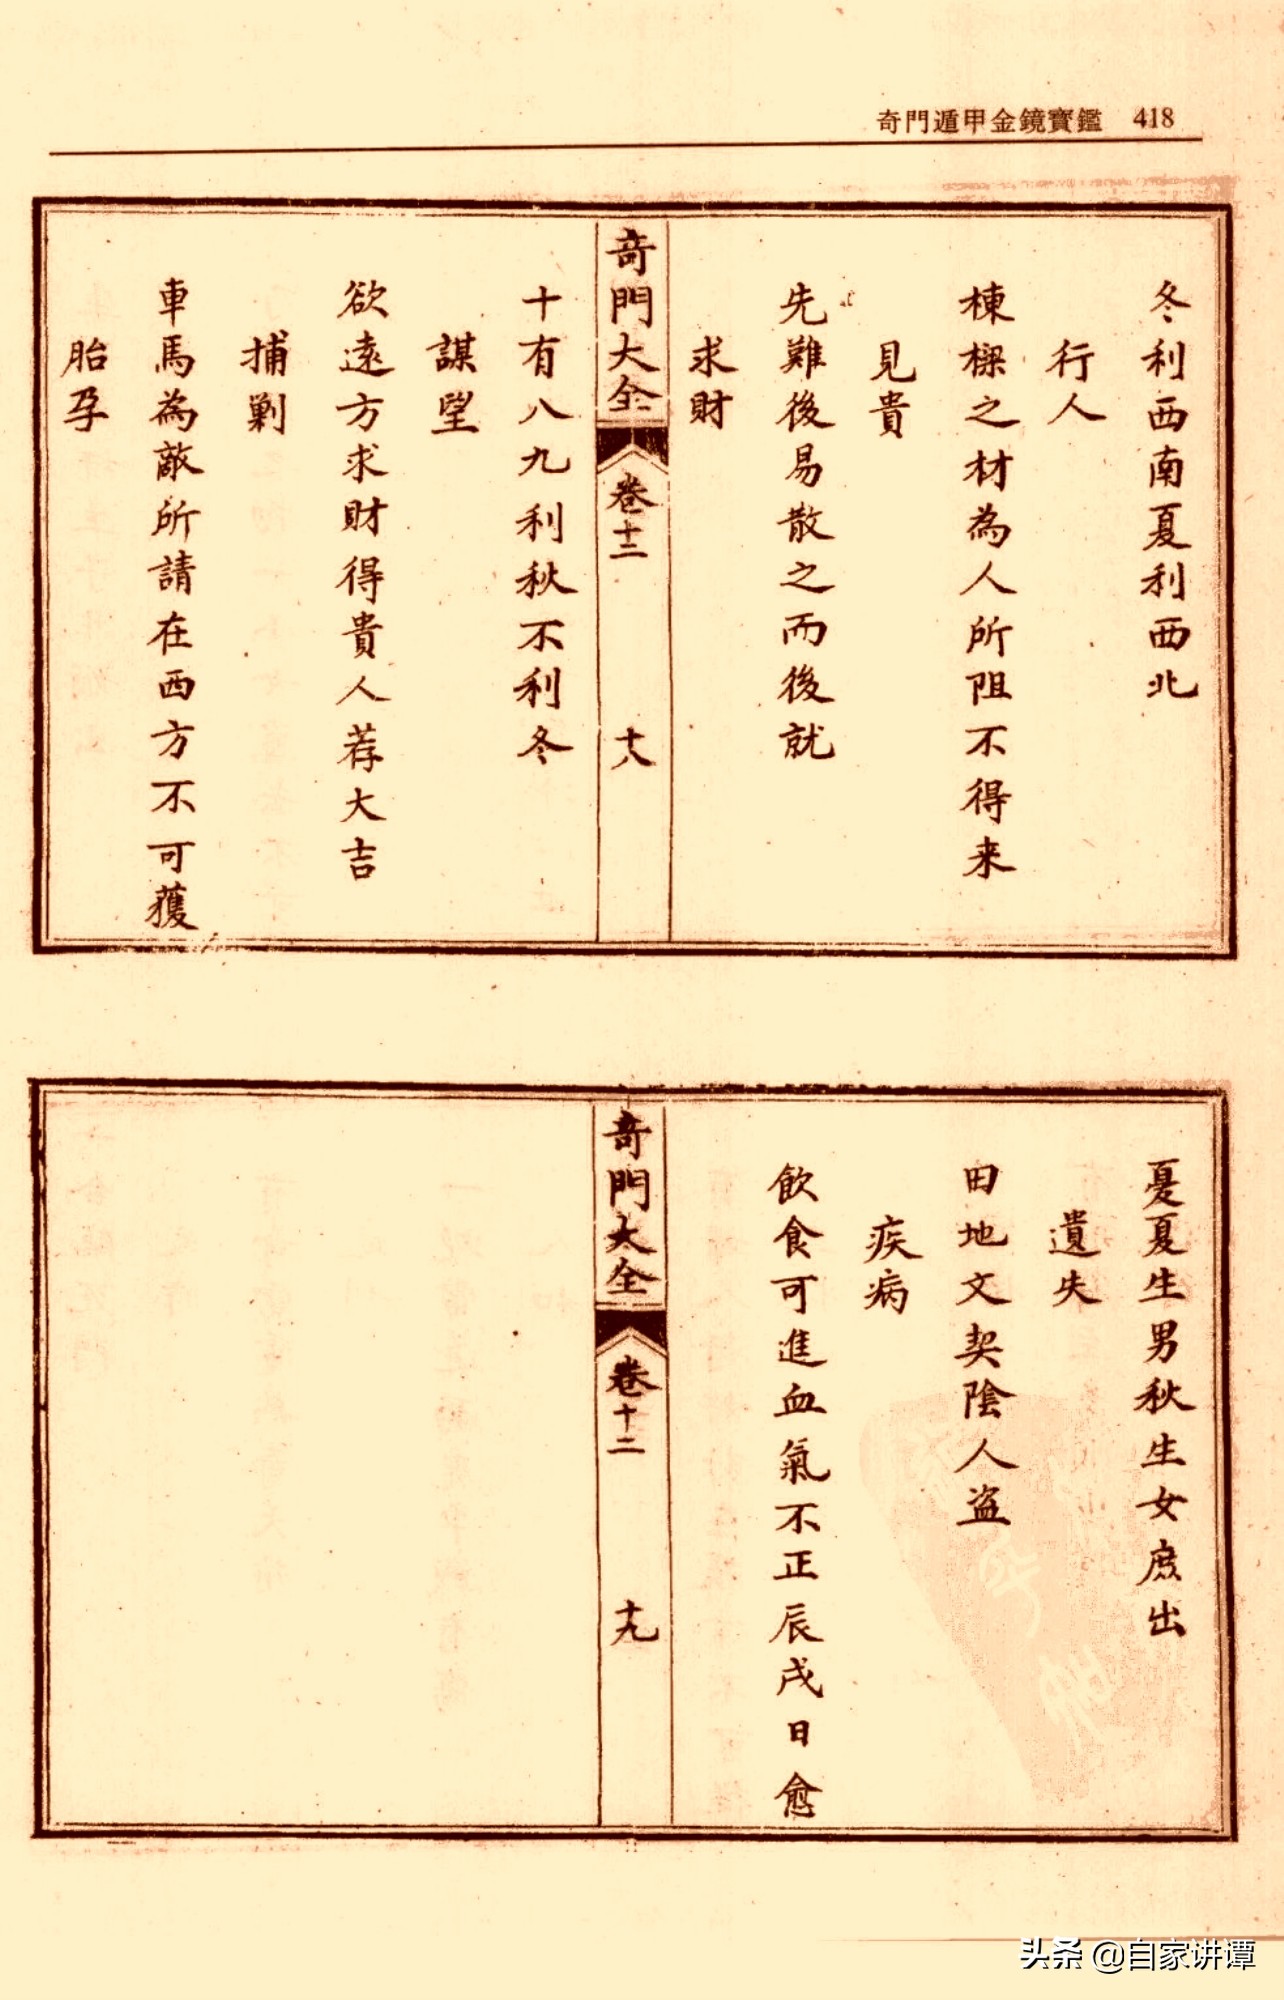 奇門遁甲金鏡寶鑑 418
冬利西南夏利西北
行人
棟樑之材為人所阻不得来
見貴
先難後易散之而後就
求財
奇門大全 卷十二 十八
十有八九利秋不利冬
謀望
欲遠方求財得貴人荐大吉
捕剿
車馬為敵所請在西方不可獲
胎孕
憂夏生男秋生女庶出
遺失
田地文契陰人盗
疾病
飲食可進血氣不正辰戌日愈
奇門大全 卷十二 十九
头条 @自家讲谭